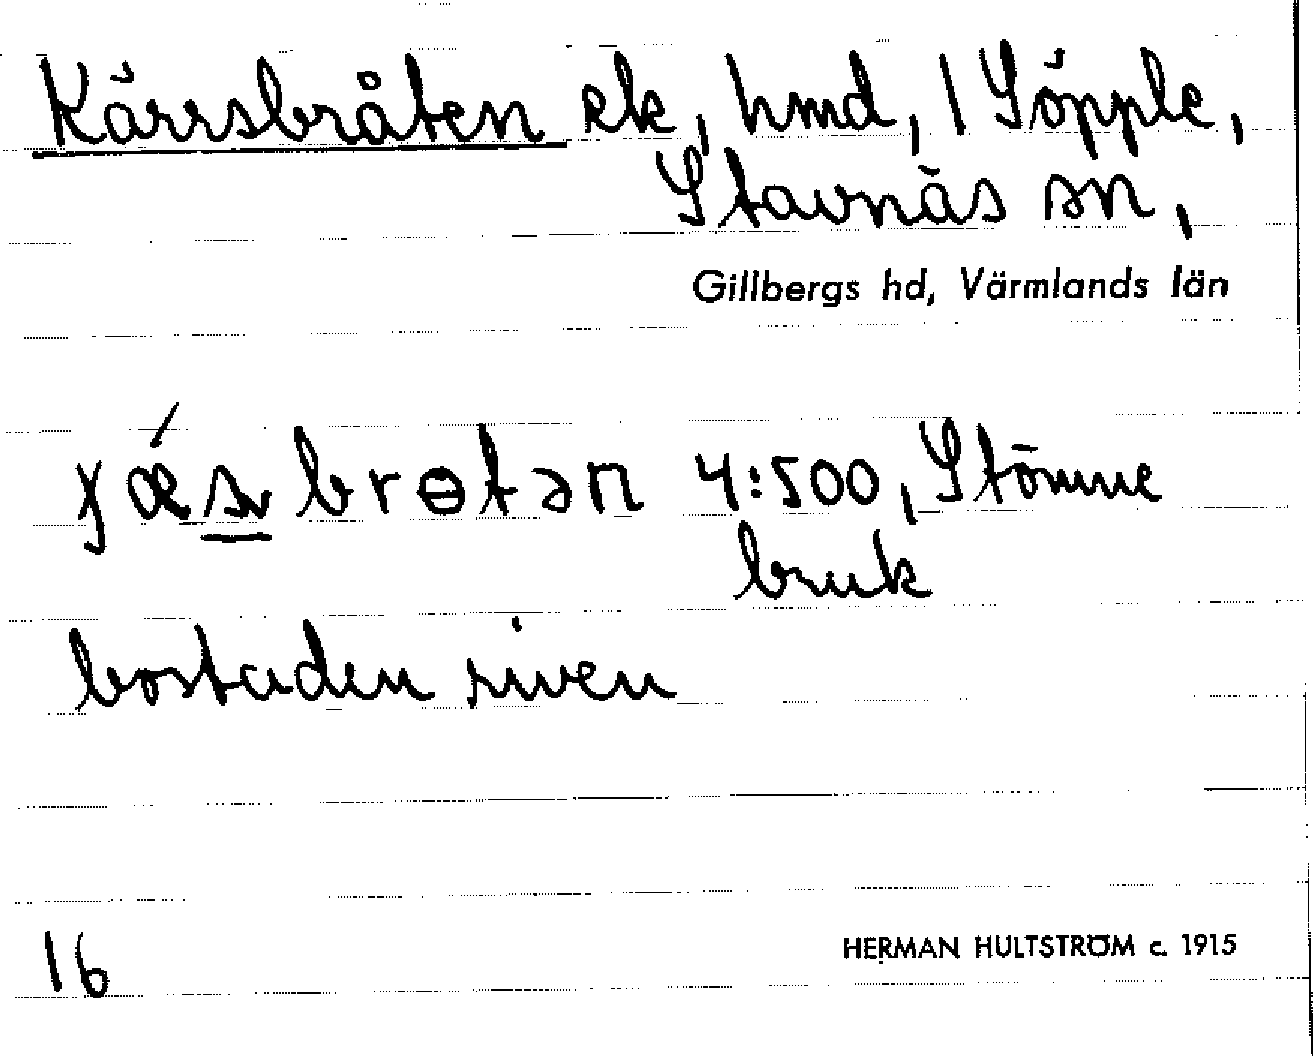 Kärrsbråten elk, hmd, 1 Söpple,
Stavnäs sn,
Gillbergs hd, Värmlands län
brɵtən 4:500, Stömne
bruk
bostaden riven
16
HERMAN HULTSTRÖM c. 1915